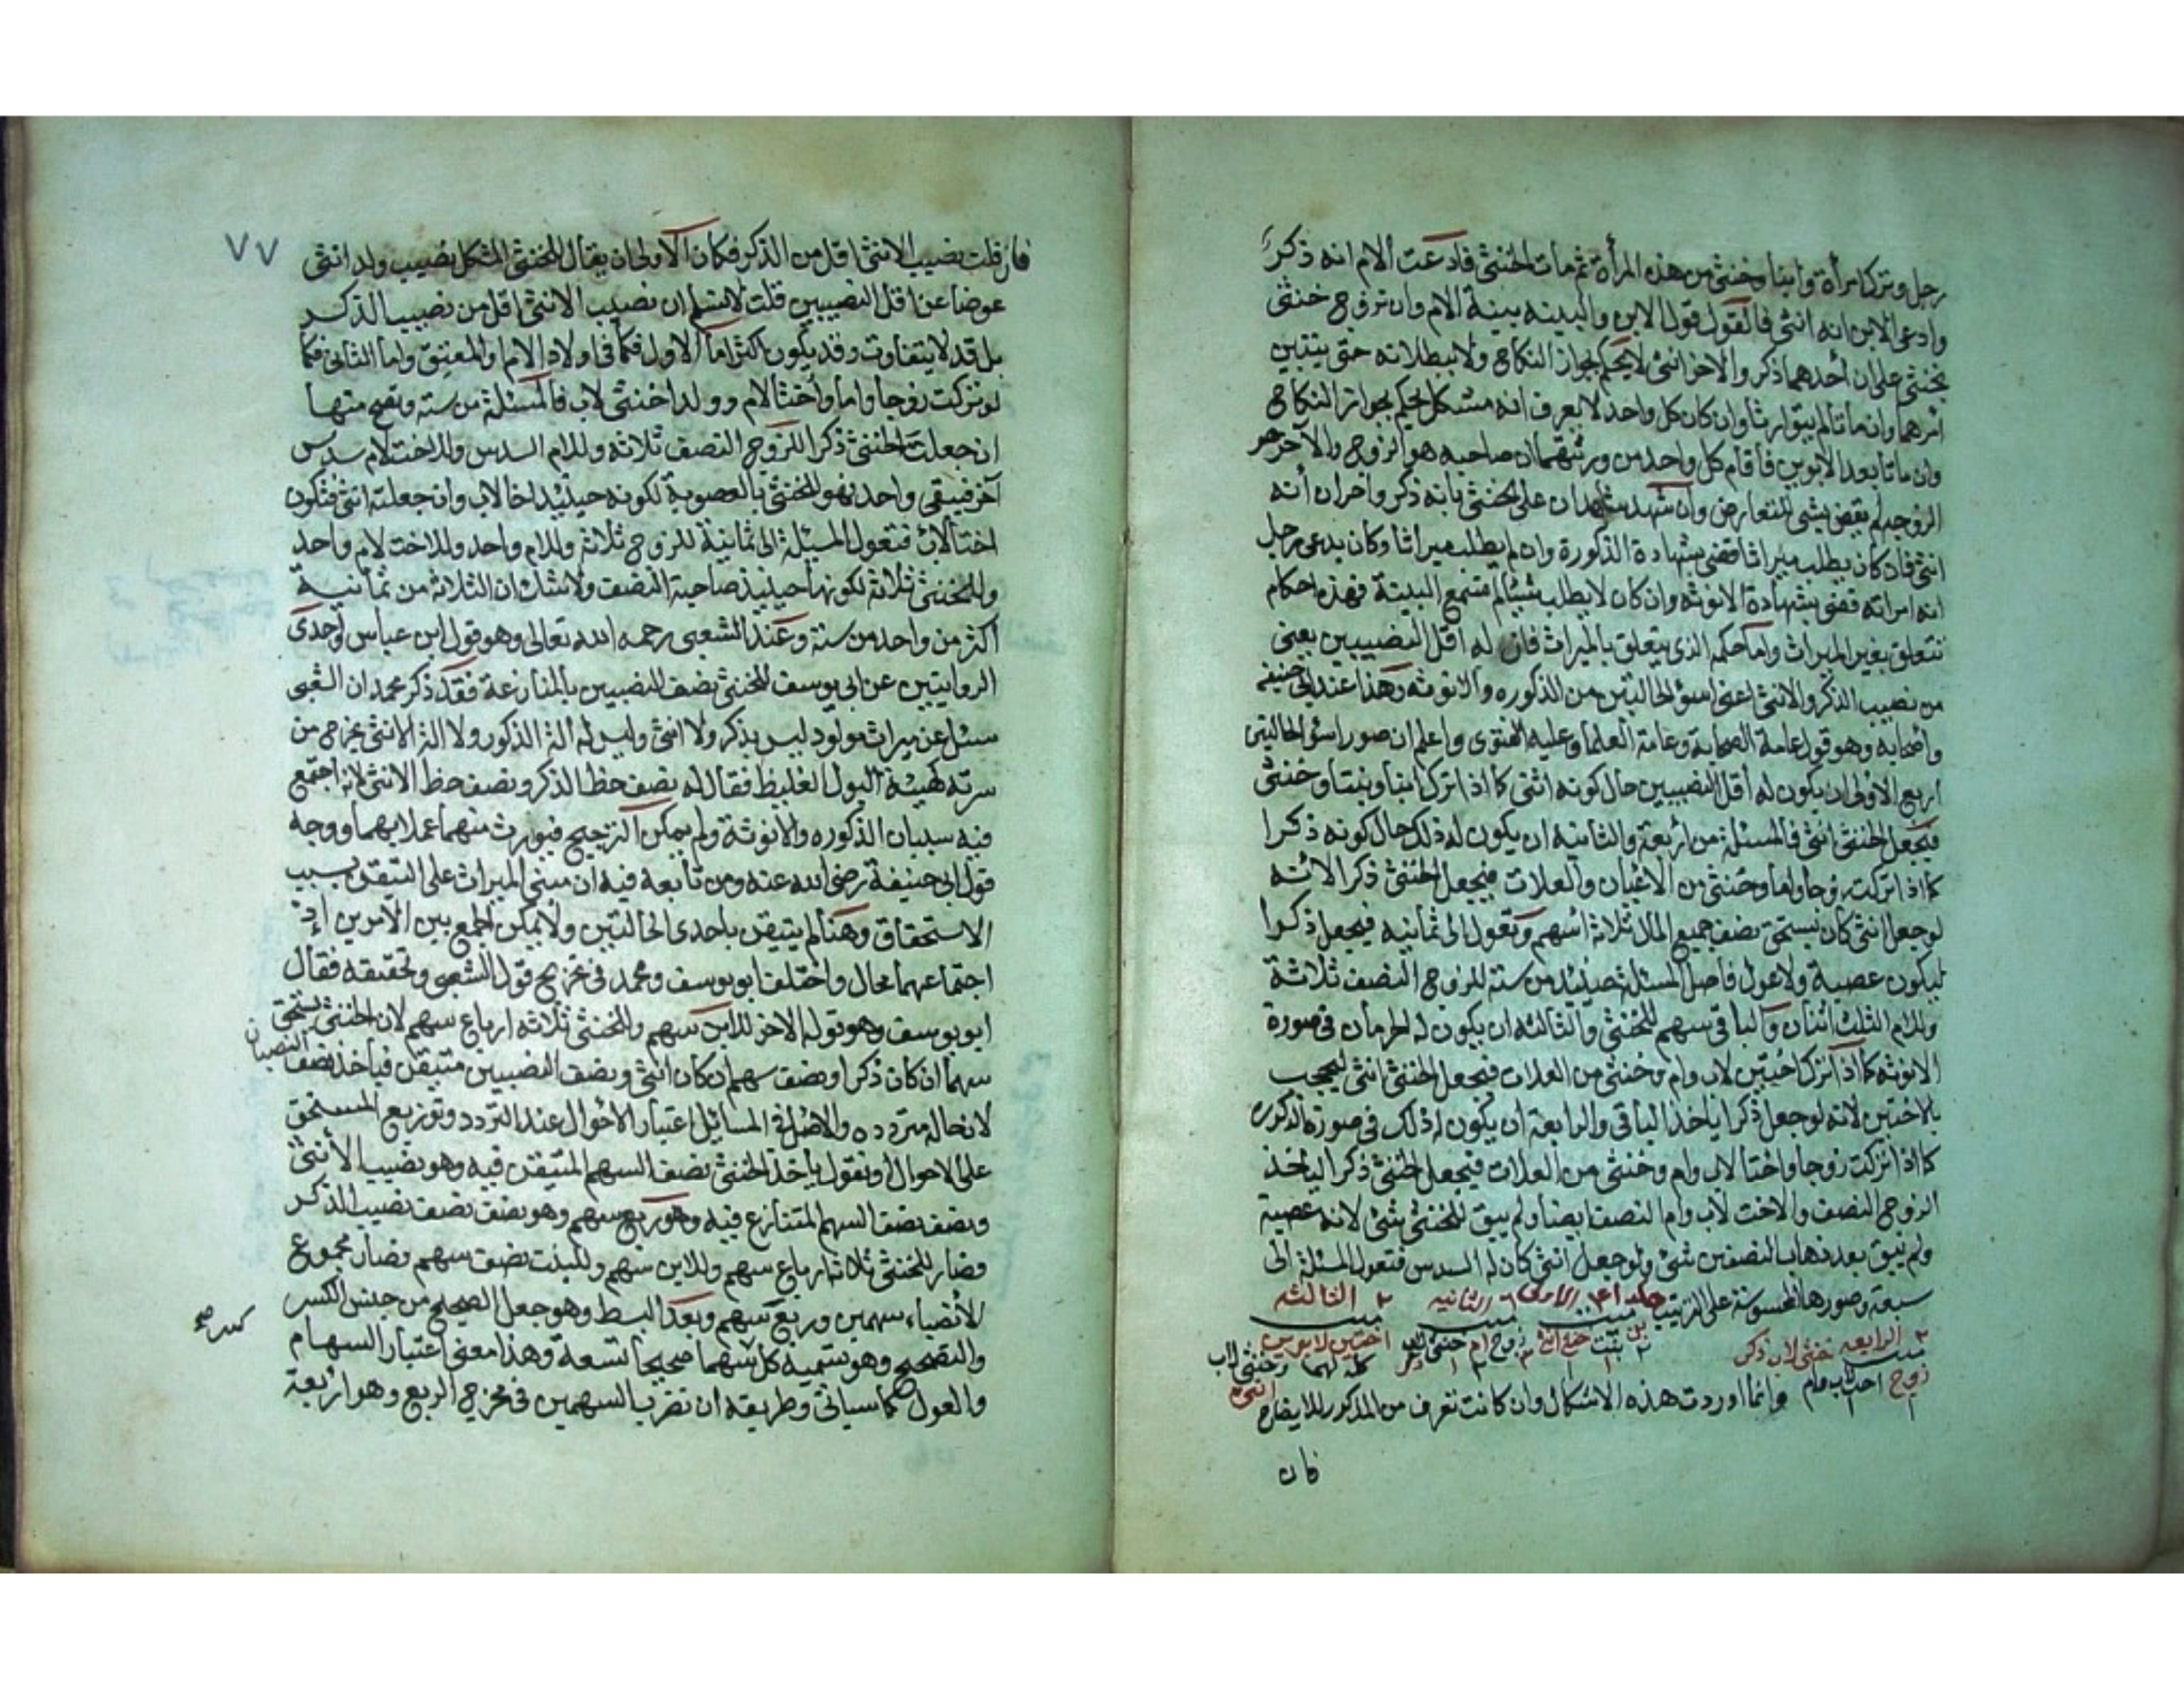 رجل وترك امرأة وابنا وخنثى من هذه المرأة ثم مات الخنثى فادعت الام انه ذكرا
وادعى الابن انه انثى فالقول قول الابن والبينه بينة الام وان تزوج خنثى
بخنثى على ان أحدهما ذكر والاخر انثى لا يحكم بجواز النكاح ولا ببطلانه حتى يتبين
امرهما وان ماتا لم يتوارثا وان كان كل واحد لا يعرف انه مشكل يحكم بجواز النكاح
وان ماتا بعد الابوين فاقام كل واحد من ورثتهما ان صاحبه هو الزوج والآخر هو
الزوجه لم يقض بشى للتعارض وان شهد شاهدان على الخنثى بانه ذكر واخران أنه
انثى فان كان يطلب ميراثا قضى بشهادة الذكورة وان لم يطلب ميراثا وكان يدعى رجل
انه امراته قضى بشهادة الانوثه وان كان لا يطلب شيئا لم تسمع البينة فهذه احكام
تتعلق بغير الميراث واما حكمه الذى يتعلق بالميراث فان له اقل النصيبين يعنى
من نصيب الذكر والانثى اعنى اسؤ الحالتين من الذكوره والانوثه وهذا عند ابى حنيفه
وأصحابه وهو قول عامة الصحابة وعامة العلما وعليه الفتوى واعلم ان صور اسؤ الحالتين
اربع الاولى ان يكون له أقل النصيبين حال كونه انثى كما اذا ترك ابنا وبنتا وخنثى
فيجعل الخنثى انثى فالمسئلة من اربعة والثانيه ان يكون له ذلك حال كونه ذكرا
كما اذا تركت زوجا واما وخنثى من الاعيان والعلات فيجعل الخنثى ذكرا لانه
لوجعل انثى كان يستحق نصف جميع المال ثلاثة اسهم وتعول الى ثمانيه فيجعل ذكرا
ليكون عصبة ولا عول فاصل المسئلة حينئذ من سته للزوج النصف ثلاثة
وللام الثلث اثنان والباقى سهم للخنثى والثالثه ان يكون له الحرمان فى صورة
الانوثه كما اذا ترك اختين لاب وام وخنثى من العلات فيجعل الخنثى انثى ليحجب
بالاختين لانه لوجعل ذكرا ياخذ الباقى والرابعة ان يكون له ذلك فى صورة الذكورة
كما اذا تركت زوجا واختا لاب وام وخنثى من العلات فيجعل الخنثى ذكرا لياخذ
الزوج النصف والاخت لاب وام النصف ايضا ولم يبق للخنثى شئ لانه عصبة
ولم يبق بعد ذهاب النصفين شئ ولو جعل انثى كان له السدس فتعول المسئلة الى
سبعة وصورها المحسوسة على الترتيب الاولى الثانيه الثالثه
ابن بنت خنثى انثى زوج ام خنثى لاب ذكر اختين لابوين وخنثى لاب انثى
الرابعه خنثى لاب ذكر
زوج اخت لاب وام وانما اوردت هذه الاشكال وان كانت تعرف من المذكور للايضاح
فان
٧٧
فان قلت نصيب الانثى اقل من الذكر فكان الاولى ان يقال للخنثى المشكل نصيب ولد انثى
عوضا عن اقل النصيبين قلت لا نسلم ان نصيب الانثى اقل من نصيب الذكر
بل قد لا يتفاوت وقد يكون اكثر اما الاول فكما فى اولاد الام والمعتق واما الثانى فكما
لو تركت زوجا واما وأختا لام وولدا خنثى لاب فالمسئلة من سته وتصح منها
ان جعلت الخنثى ذكرا للزوج النصف ثلاثه وللام السدس وللاخت لام سدس
آخر فيبقى واحد فهو للخنثى بالعصوبة لكونه حينئذ اخا لاب وان جعلته انثى فتكون
اختا لاب فتعول المسئلة الى ثمانية للزوج ثلاثة وللام واحد وللاخت لام واحد
وللخنثى ثلاثة لكونها حينئذ صاحبة النصف ولا شك ان الثلاثة من ثمانية
اكثر من واحد من ستة وعند الشعبى رحمه الله تعالى وهو قول ابن عباس واحدى
الروايتين عن ابى يوسف للخنثى نصف النصيبين بالمنازعة فقد ذكر محمد ان الشعبى
سئل عن ميراث مولود ليس بذكر ولا انثى وليس له الة الذكور ولا الة الانثى يخرج من
سرته كهيئة البول الغليظ فقال له نصف حظ الذكر ونصف حظ الانثى لانه اجتمع
فيه سببان الذكوره والانوثة ولم يمكن الترجيح فيورث منهما عملا بهما ووجه
قول ابى حنيفة رضى الله عنه ومن تابعه فيه ان مبنى الميراث على التيقن بسبب
الاستحقاق وهنا لم يتيقن باحدى الحالتين ولا يمكن الجمع بين الامرين اذ
اجتماعهما محال واختلف ابو يوسف ومحمد فى تخريج قول الشعبى وتحقيقه فقال
ابو يوسف وهو قوله الاخر للابن سهم وللخنثى ثلاثة ارباع سهم لان الخنثى يستحق
سهما ان كان ذكرا ونصف سهم ان كان انثى ونصف النصيبين متيقن فياخذ نصف النصيبان
لان حاله متردده والاصل فى المسائل اعتبار الاحوال عند التردد وتوزيع المستحق
على الاحوال او نقول ياخذ الخنثى نصف السهم المتيقن فيه وهو نصيب الأنثى
ونصف نصف السهم المتنازع فيه وهو ربع سهم وهو نصف نصف نصيب الذكر
فصار للخنثى ثلاثة ارباع سهم وللابن سهم وللبنت نصف سهم فصار مجموع
الأنصباء سهمين وربع سهم وبعد البسط وهو جعل الصحيح من جنس الكسر
والتصحيح وهو تسمية كل سهما صحيحا تسعة وهذا معنى اعتبار السهام
والعول كما سيأتى وطريقه ان تضرب السهمين فى مخرج الربع وهو اربعة